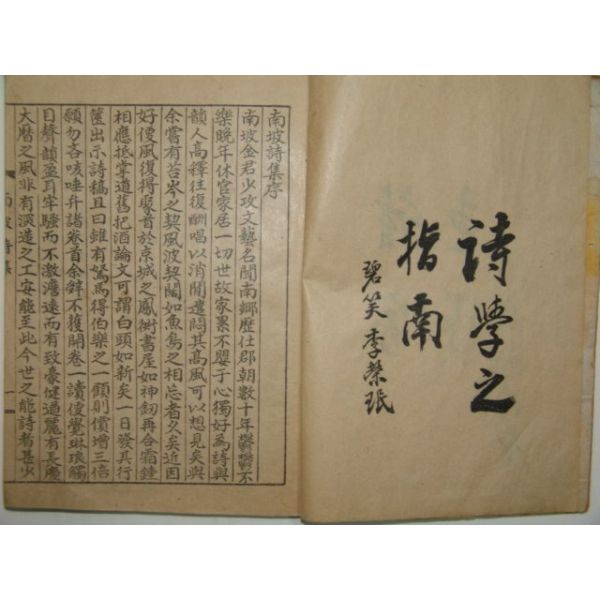 詩學之
指南
碧笑 李榮珉
南坡詩集序
南坡金君少攻文藝名聞南鄉歷仕郡朝數十年鬱鬱不
樂晩年休官家居一切世故家累不嬰于心獨好為詩與
韻人高釋往復酬唱以消閒遣悶其高風可以想見矣與
余嘗有苔岑之契風波契闊如魚鳥之相忘者久矣近因
好便風復得聚首於京城之鳳術書屋如神釰再合霜鍾
相應抵掌道舊把酒論文可謂白頭如新矣一日發其行
篋出示詩稿且曰雖有駑馬得伯樂之一顧則價增三倍
願勿吝咳唾弁諸卷首余辭不獲開卷一讀便覺琳琅觸
目聲韻盈耳牢騷而不激澹遠而有致豪健遒麗有長慶
大曆之風非有深造之工安能至此今世之能詩者甚少
南坡詩集
一